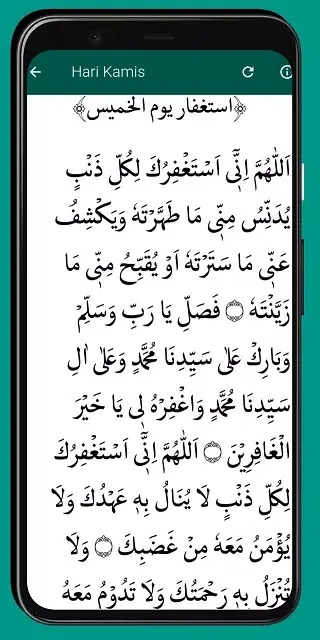 Hari Kamis
﴿استغفار يوم الخميس﴾
اَللّٰهُمَّ اِنِّيْٓ اَسْتَغْفِرُكَ لِكُلِّ ذَنْبٍ
يُدَنِّسُ مِنِّيْ مَا طَهَّرْتَهٗ وَيَكْشِفُ
عَنِّيْ مَا سَتَرْتَهٗ اَوْ يُقَبِّحُ مِنِّيْ مَا
زَيَّنْتَهٗ ۝ فَصَلِّ يَا رَبِّ وَسَلِّمْ
وَبَارِكْ عَلٰى سَيِّدِنَا مُحَمَّدٍ وَعَلٰى اٰلِ
سَيِّدِنَا مُحَمَّدٍ وَاغْفِرْهُ لِيْ يَا خَيْرَ
الْغَافِرِيْنَ ۝ اَللّٰهُمَّ اِنِّيْٓ اَسْتَغْفِرُكَ
لِكُلِّ ذَنْبٍ لَا يُنَالُ بِهٖ عَهْدُكَ وَلَا
يُؤْمَنُ مَعَهٗ مِنْ غَضَبِكَ ۝ وَلَا
تُنْزَلُ بِهٖ رَحْمَتُكَ وَلَا تَدُوْمُ مَعَهٗ